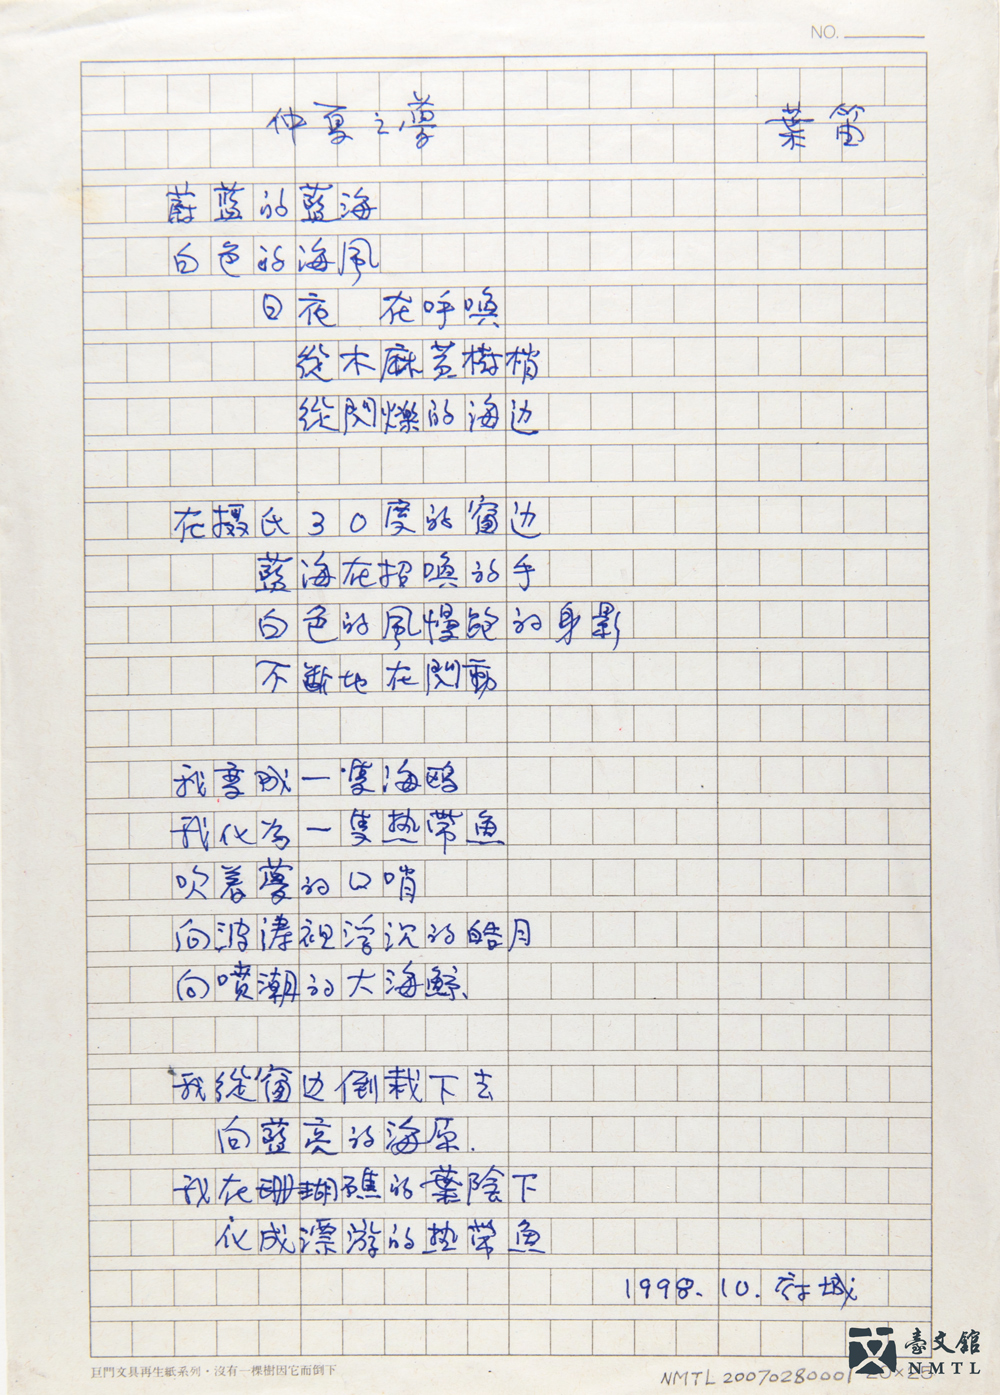 NO.
仲夏之夢 葉笛
蔚蓝的藍海
白色的海風
日夜 在呼喚
從木麻黄樹梢
從閃爍的海边
在摄氏30度的窗边
藍海在招喚的手
白色的風慢跑的身影
不斷地在閃動
我变成一隻海鸥
我化为一隻热带魚
吹着夢的口哨
向波涛裡浮沉的皓月
向喷潮的大海鯨、
我從窗边倒栽下去
向藍亮的海原.
我在珊瑚礁的葉陰下
化成漂游的热带魚
1998.10.府城
巨門文具再生紙系列·沒有一棵樹因它而倒下
NMTL20070280001
25×25
臺文館
NMTL